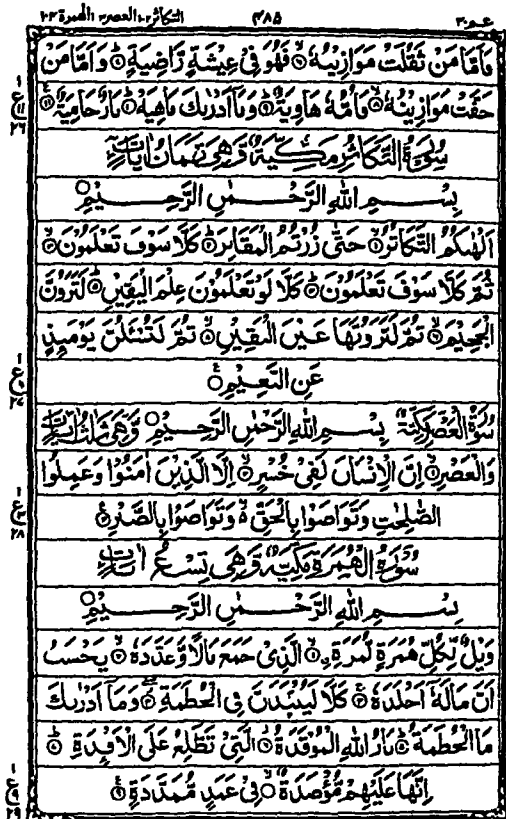 عـم ٣٠ ٤٨٥ التكاثر ١٠٢ العصر ١٠٣ الهمزة ١٠٤
فَاَمَّا مَنْ ثَقُلَتْ مَوَازِيْنُهٗ ۙ۶ فَهُوَ فِيْ عِيْشَةٍ رَّاضِيَةٍ ؕ۷ وَاَمَّا مَنْ
خَفَّتْ مَوَازِيْنُهٗ ۙ۸ فَاُمُّهٗ هَاوِيَةٌ ؕ۹ وَمَاۤ اَدْرٰىكَ مَاهِيَهْ ؕ۱۰ نَارٌ حَامِيَةٌ ۱۱
سُوْرَةُ التَّكَاثُرِ مَكِّيَّةٌ وَّهِيَ ثَمَانُ اٰيَاتٍ
بِسْمِ اللهِ الرَّحْمٰنِ الرَّحِيْمِ
اَلْهٰىكُمُ التَّكَاثُرُ ۙ۱ حَتّٰى زُرْتُمُ الْمَقَابِرَ ؕ۲ كَلَّا سَوْفَ تَعْلَمُوْنَ ۙ۳
ثُمَّ كَلَّا سَوْفَ تَعْلَمُوْنَ ؕ۴ كَلَّا لَوْ تَعْلَمُوْنَ عِلْمَ الْيَقِيْنِ ؕ۵ لَتَرَوُنَّ
الْجَحِيْمَ ۙ۶ ثُمَّ لَتَرَوُنَّهَا عَيْنَ الْيَقِيْنِ ۙ۷ ثُمَّ لَتُسْـَٔلُنَّ يَوْمَىِٕذٍ
عَنِ النَّعِيْمِ ۸
سُوْرَةُ الْعَصْرِ مَكِّيَّةٌ بِسْمِ اللهِ الرَّحْمٰنِ الرَّحِيْمِ وَّهِيَ ثَلٰثُ اٰيَاتٍ
وَالْعَصْرِ ۙ۱ اِنَّ الْاِنْسَانَ لَفِيْ خُسْرٍ ۙ۲ اِلَّا الَّذِيْنَ اٰمَنُوْا وَعَمِلُوا
الصّٰلِحٰتِ وَتَوَاصَوْا بِالْحَقِّ ۙ۬ وَتَوَاصَوْا بِالصَّبْرِ ۳
سُوْرَةُ الْهُمَزَةِ مَكِّيَّةٌ وَّهِيَ تِسْعُ اٰيَاتٍ
بِسْمِ اللهِ الرَّحْمٰنِ الرَّحِيْمِ
وَيْلٌ لِّكُلِّ هُمَزَةٍ لُّمَزَةِ ۙ۱ ۨالَّذِيْ جَمَعَ مَالًا وَّعَدَّدَهٗ ۙ۲ يَحْسَبُ
اَنَّ مَالَهٗۤ اَخْلَدَهٗ ۚ۳ كَلَّا لَيُنْۢبَذَنَّ فِي الْحُطَمَةِ ۖ۴ وَمَاۤ اَدْرٰىكَ
مَا الْحُطَمَةُ ؕ۵ نَارُ اللهِ الْمُوْقَدَةُ ۙ۶ الَّتِيْ تَطَّلِعُ عَلَى الْاَفْـِٕدَةِ ؕ۷
اِنَّهَا عَلَيْهِمْ مُّؤْصَدَةٌ ۙ۸ فِيْ عَمَدٍ مُّمَدَّدَةٍ ۹